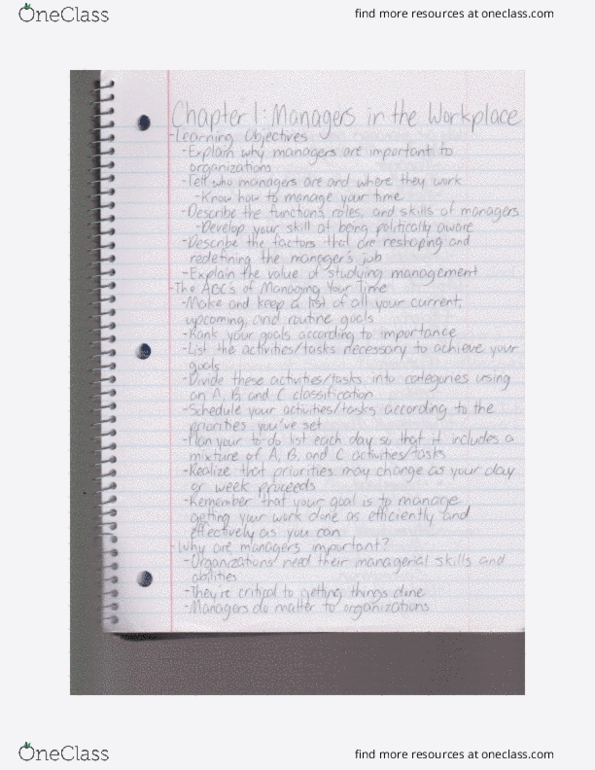 OneClass
find more resources at oneclass.com
Chapter 1: Managers in the Workplace
-Learning Objectives
-Explain why managers are important to
organizations
-Tell who managers are and where they work
-Know how to manage your time
-Describe the functions, roles, and skills of managers
-Develop your skill at being politically aware
-Describe the factors that are reshaping and
redefining the manager's job
-Explain the value of studying management
-The ABC's of Managing Your Time
-Make and keep a list of all your current,
upcoming, and routine goals
-Rank your goals according to importance
-List the activities/tasks necessary to achieve your
goals
-Divide these activities/tasks into categories using
an A, B, and C classification
-Schedule your activities/tasks according to the
priorities you've set
-Plan your to-do list each day so that it includes a
mixture of A, B, and C activities/tasks
-Realize that priorities may change as your day
or week proceeds
-Remember that your goal is to manage
getting your work done as efficiently and
effectively as you can
-Why are managers important?
-Organizations need their managerial skills and
abilities
-They're critical to getting things done
-Managers do matter to organizations
OneClass
find more resources at oneclass.com